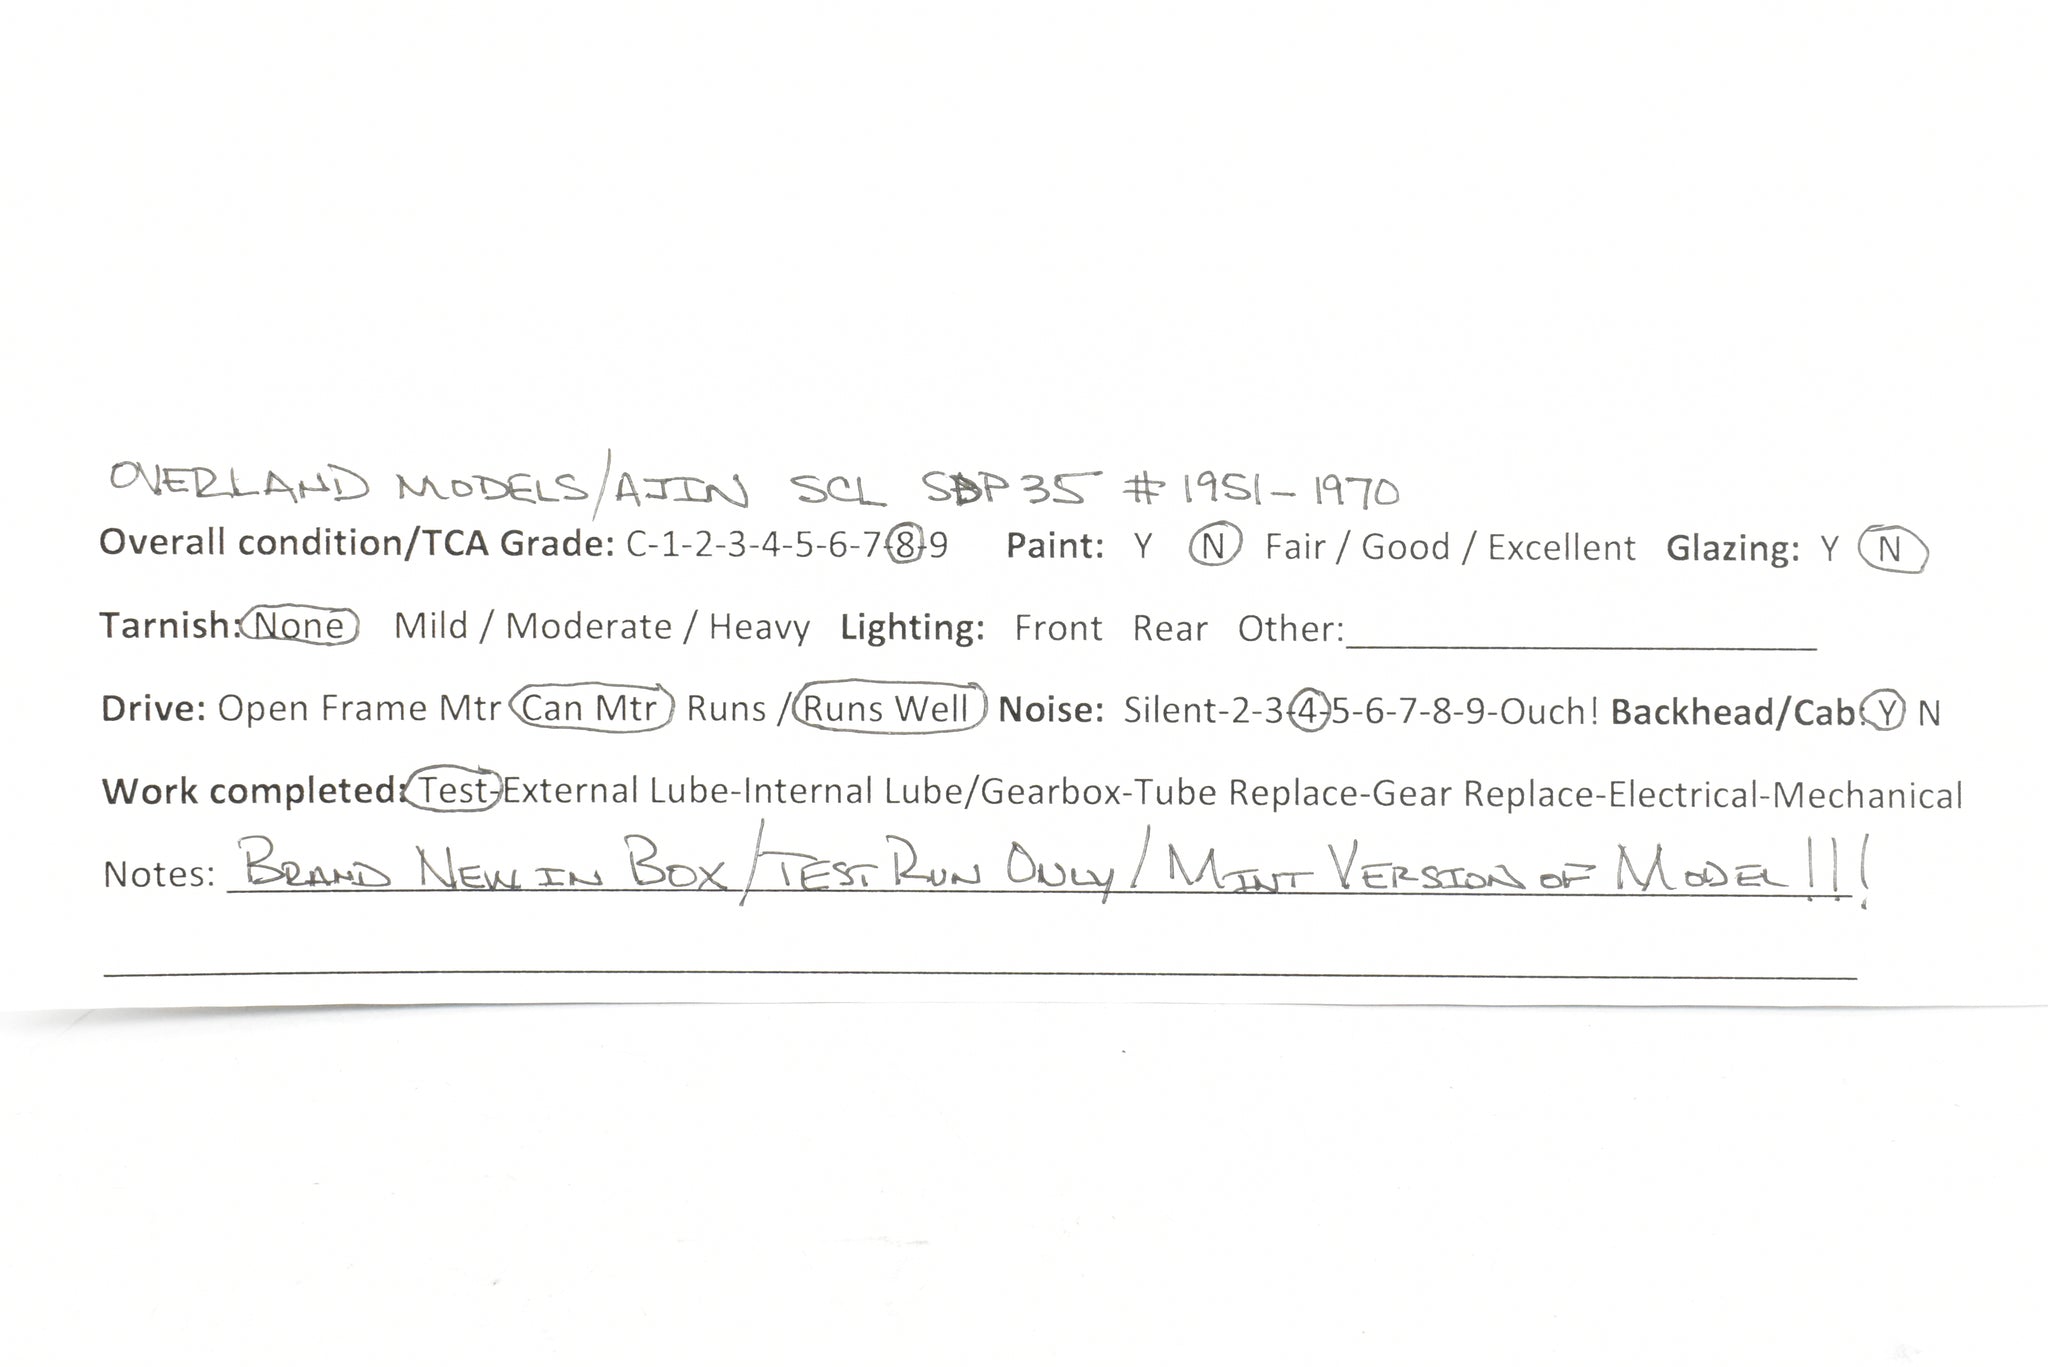 OVERLAND MODELS/AJIN SCL SDP35 #1951-1970
Overall condition/TCA Grade: C-1-2-3-4-5-6-7-8-9 Paint: Y N Fair / Good / Excellent Glazing: Y N
Tarnish: None Mild / Moderate / Heavy Lighting: Front Rear Other:
Drive: Open Frame Mtr Can Mtr Runs / Runs Well Noise: Silent-2-3-4-5-6-7-8-9-Ouch! Backhead/Cab: Y N
Work completed: Test-External Lube-Internal Lube/Gearbox-Tube Replace-Gear Replace-Electrical-Mechanical
Notes: BRAND NEW IN BOX/TEST RUN ONLY/MINT VERSION OF MODEL!!!